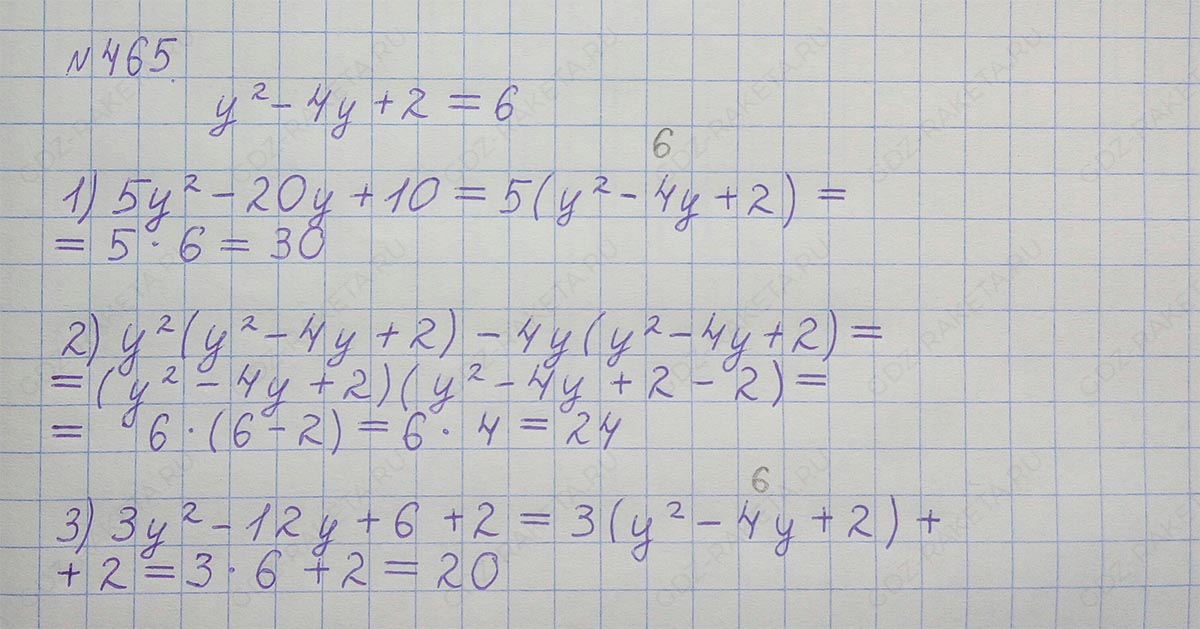 №465.
y² - 4y + 2 = 6
6
1) 5y² - 20y + 10 = 5(y² - 4y + 2) =
= 5 · 6 = 30
2) y²(y² - 4y + 2) - 4y(y² - 4y + 2) =
= (y² - 4y + 2)(y² - 4y + 2 - 2) =
= 6 · (6 - 2) = 6 · 4 = 24
6
3) 3y² - 12y + 6 + 2 = 3(y² - 4y + 2) +
+ 2 = 3 · 6 + 2 = 20
GDZ-RAKETA.RU